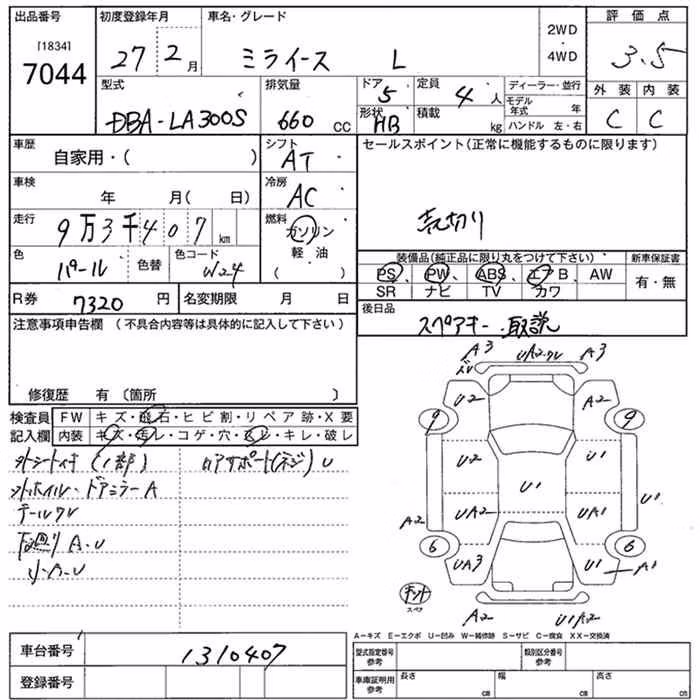 出品番号 初度登録年月 車名・グレード 2WD ・ 4WD 評価点
[1834]
7044 27 2月 ミライース L 3.5
型式 排気量 ドア 5 定員 4人 ディーラー・並行 外装 内装
DBA-LA300S 660 CC 形状 HB 積載 kg モデル年式 年 ハンドル 左・右 C C
車歴 自家用・( ) シフト AT セールスポイント(正常に機能するものに限ります)
車検 年 月( 日) 冷房 AC
走行 9万3千407km 燃料 ガソリン 軽油 ( ) 売切り
色 パール 色替 色コード W24 装備品(純正品に限り丸をつけて下さい) 新車保証書
PS、PW、ABS、エアB、AW 有・無
R券 7320円 名変期限 月 日 SR ナビ TV カワ
注意事項申告欄(不具合内容等は具体的に記入して下さい) 後日品
スペアキー・取説
修復歴 有〔箇所 〕
検査員 FW キズ・飛石・ヒビ割・リペア跡・X要
記入欄 内装 キズ・汚レ・コゲ・穴・スレ・キレ・破レ
(1部) U
外ホイル・ドアミラーA
テールワレ
下廻りA・U
A3 UA2・ワレ A3
U2 A2
9 9
U2 U1
U1 U1
A2 UA2 UA1
6 6
UA3 U1 A1
キット
スペア
A2 U1A2
A-キズ E-エクボ U-凹み W-補修跡 S-サビ C-腐食 XX-交換済
車台番号 1310407 型式指定番号 参考 類別区分番号 参考
登録番号 車庫証明用 参考 長さ cm 幅 cm 高さ cm